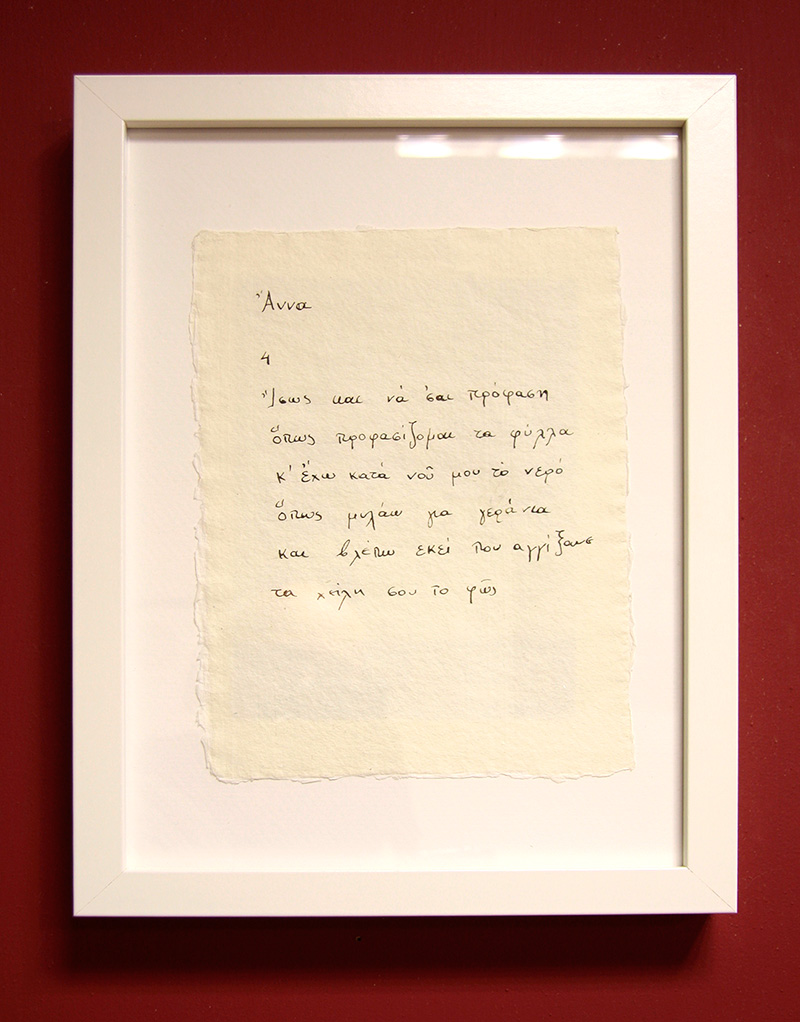 Ἄννα
4
Ἴσως και νά 'σαι πρόφαση
ὅπως προφασίζομαι τα φύλλα
κ' ἔχω κατά νοῦ μου τὸ νερό
ὅπως μιλάω για γεράνια
και βλέπω εκεί που αγγίζουνε
τα χείλη σου το φῶς